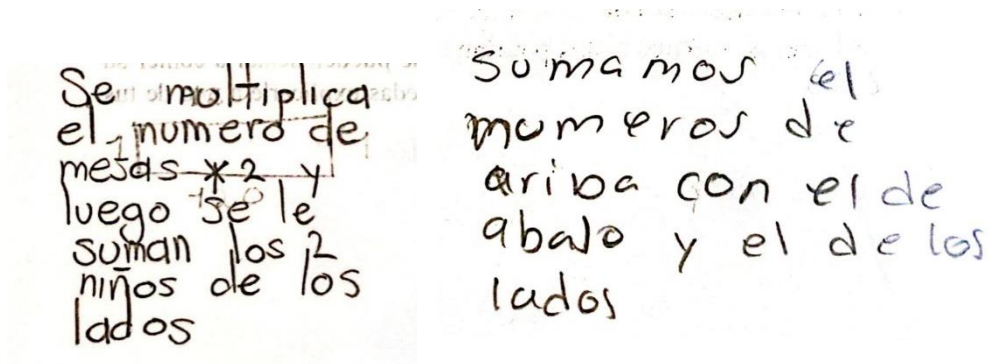 Se moltiplica
el numero de
mesas * 2 y
luego se le
suman los 2
niños de los
lados
Sumamos el
numeros de
ariba con el de
abajo y el de los
lados